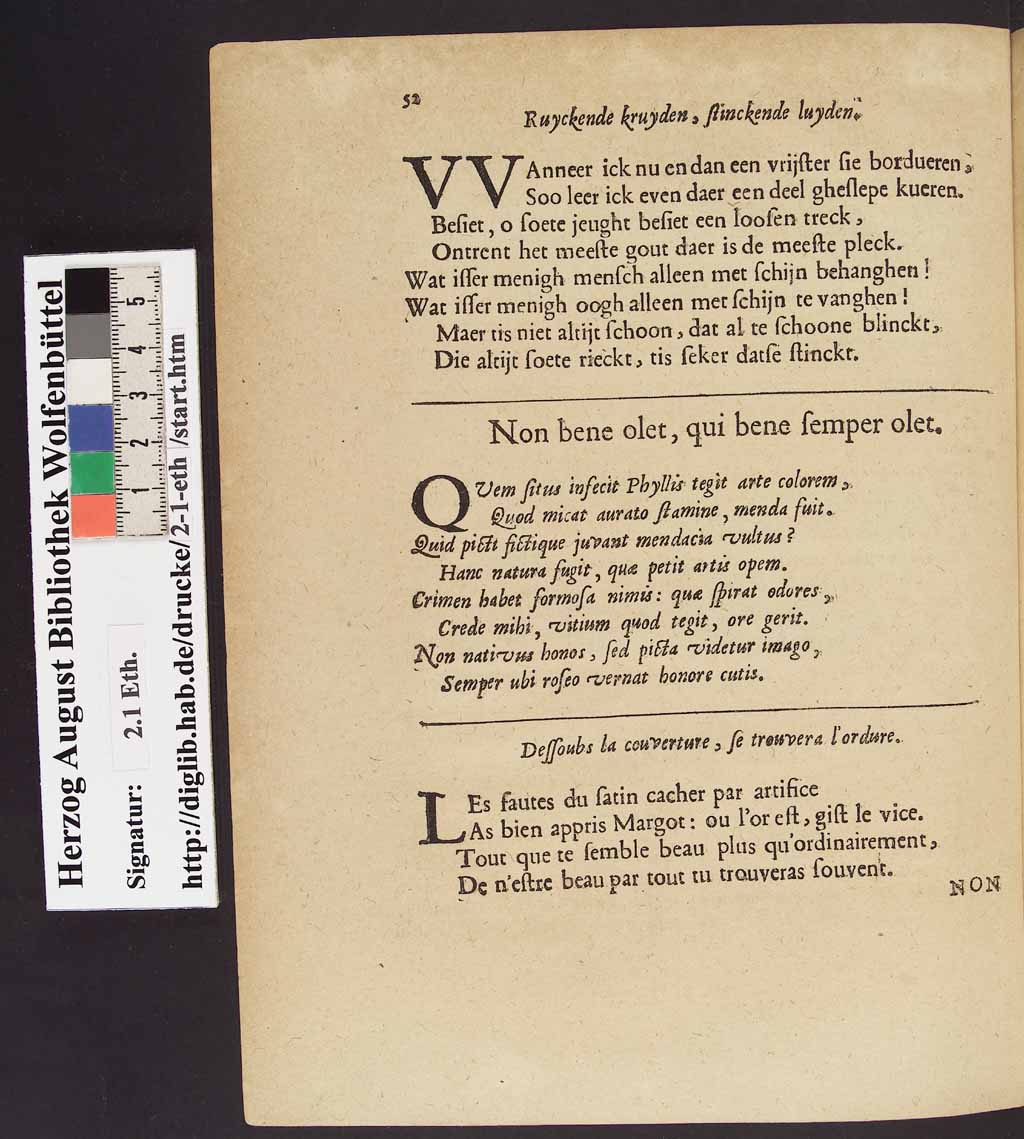 52
Ruyckende kruyden, ſtinckende luyden.
VVAnneer ick nu en dan een vrijſter ſie bordueren,
Soo leer ick even daer een deel gheſlepe kueren.
Beſiet, o ſoete jeught beſiet een looſen treck,
Ontrent het meeſte gout daer is de meeſte pleck.
Wat iſſer menigh menſch alleen met ſchijn behanghen!
Wat iſſer menigh oogh alleen met ſchijn te vanghen!
Maer tis niet altijt ſchoon, dat al te ſchoone blinckt,
Die altijt ſoete rieckt, tis ſeker datſe ſtinckt.
Non bene olet, qui bene ſemper olet.
QVem ſitus infecit Phyllis tegit arte colorem,
Quod micat aurato ſtamine, menda fuit.
Quid picti fictique juvant mendacia vultus?
Hanc natura fugit, quæ petit artis opem.
Crimen habet formoſa nimis: quæ ſpirat odores,
Crede mihi, vitium quod tegit, ore gerit.
Non nativus honos, ſed picta videtur imago,
Semper ubi roſeo vernat honore cutis.
Deſſoubs la couverture, ſe trouvera l'ordure.
LEs fautes du ſatin cacher par artifice
As bien appris Margot: ou l'or eſt, giſt le vice.
Tout que te ſemble beau plus qu'ordinairement,
De n'eſtre beau par tout tu trouveras ſouvent.
NON
Herzog August Bibliothek Wolfenbüttel
Signatur: 2.1 Eth.
http://diglib.hab.de/drucke/2-1-eth /start.htm
1 2 3 4 5